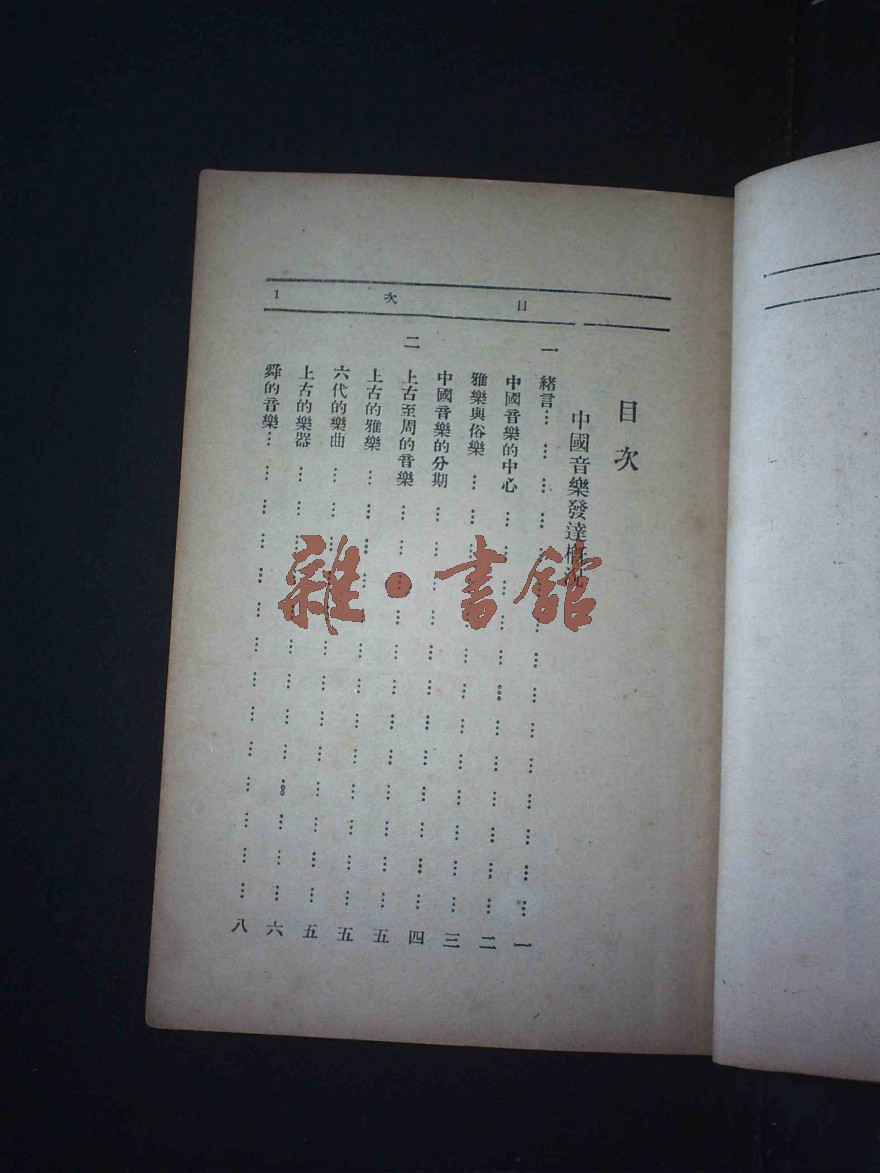 目 次 1
目次
中國音樂發達概況
一 緒言………………………………………一
中國音樂的中心………………………………………二
雅樂與俗樂………………………………………三
中國音樂的分期………………………………………四
二 上古至周的音樂………………………………………五
上古的雅樂………………………………………五
六代的樂曲………………………………………五
上古的樂器………………………………………六
舜的音樂………………………………………八
雜·書館